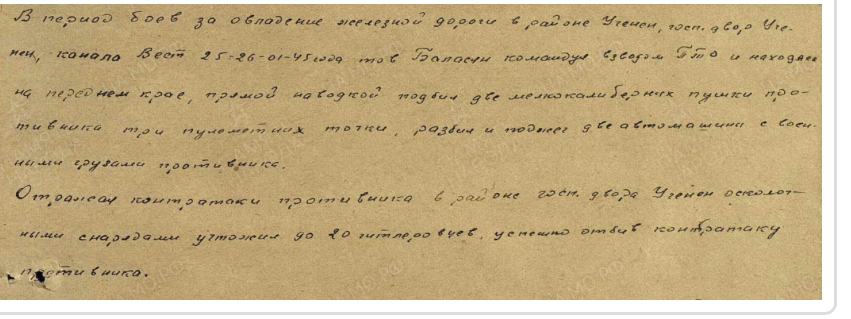 В период боев за овладение железной дороги в районе Угенен, госп. двор Уге-
нен, канала Вест 25-26-01-45 года тов Баласян командуя взводом ПТО и находясь
на переднем крае, прямой наводкой подбил две мелкокалиберных пушки про-
тивника три пулеметных точки, разбил и поджег две автомашины с воен-
ными грузами противника.
Отражая контратаки противника в районе госп. двора Угенен осколоч-
ными снарядами учтожил до 20 гитлеровцев, успешно отбив контратаку
противника.